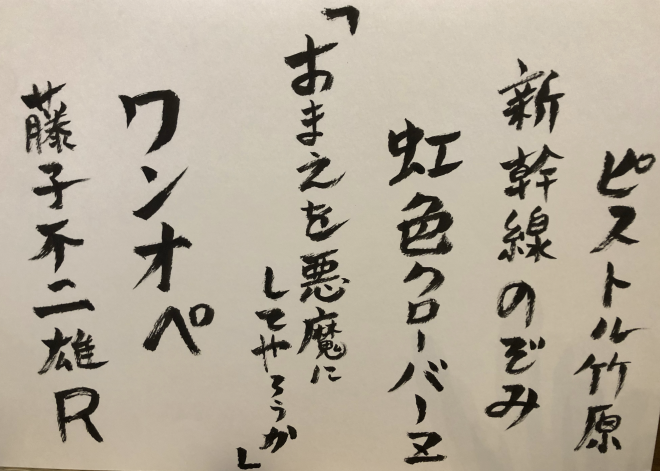 ピストル竹原
新幹線のぞみ
虹色クローバーZ
「おまえを悪魔に
してやろうか」
ワンオペ
藤子不二雄R